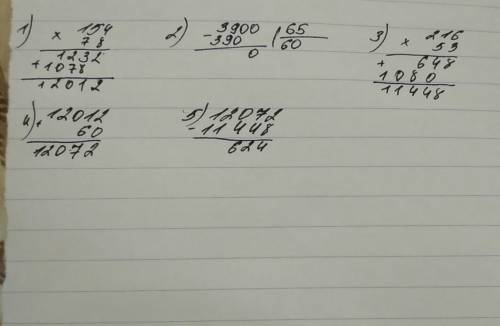 1) × 154
78
1232
+ 1078
12012
2) - 3900 | 65
390 60
0
3) × 216
53
+ 648
1080
11448
4) + 12012
60
12072
5) 12072
- 11448
624